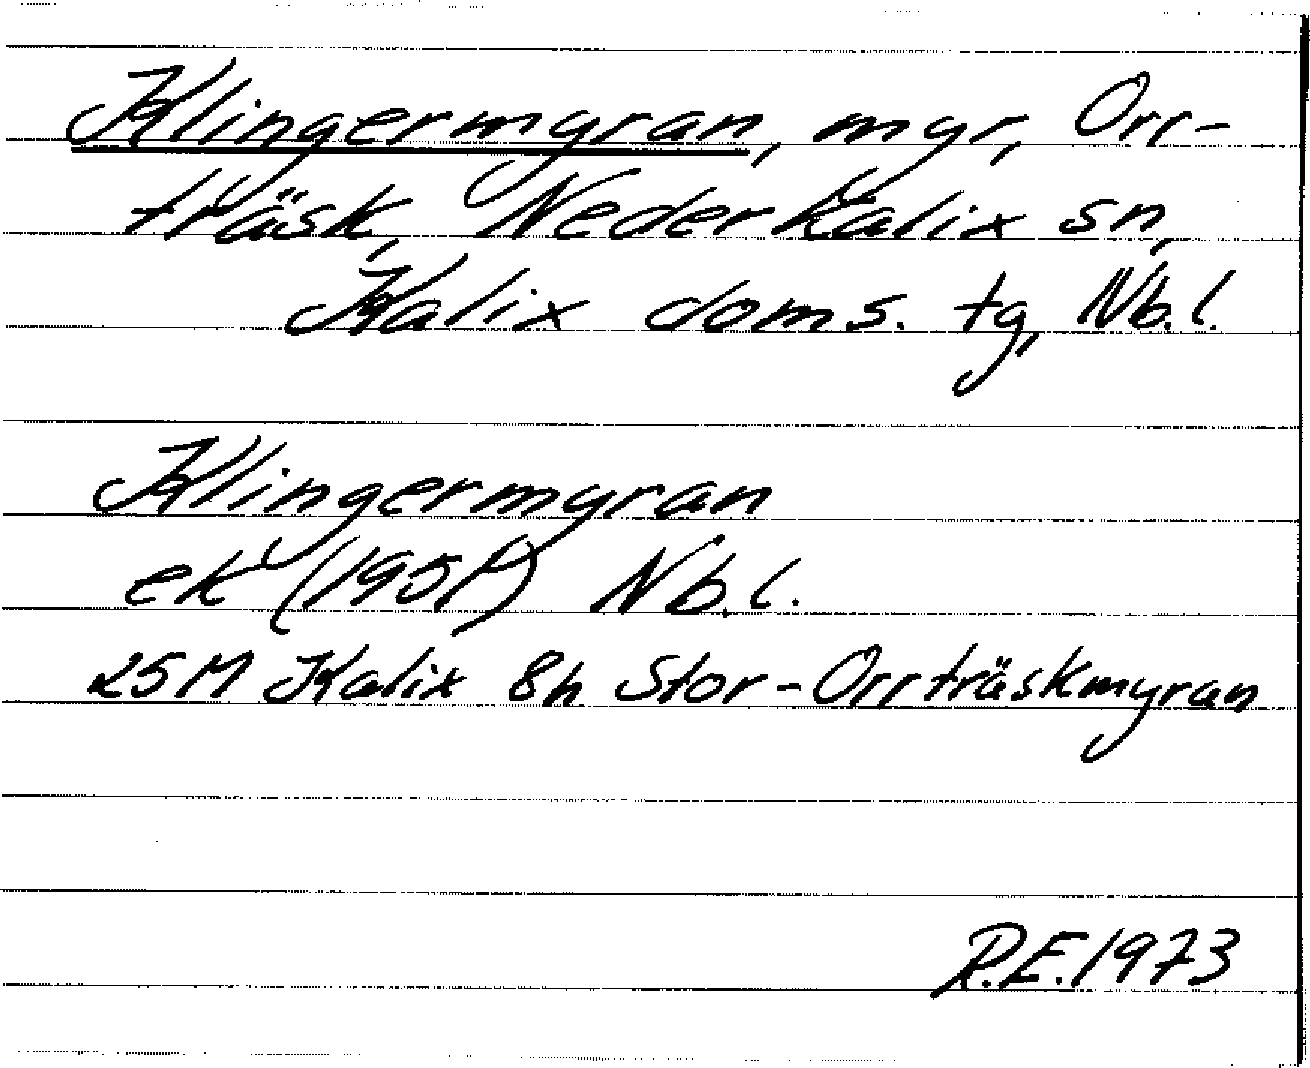 Klingermyran, myr, Orr-
träsk, Nederkalix sn,
Kalix doms. tg, Nb.l.
Klingermyran
ek (1951) Nb.l.
25M Kalix 8h Stor-Orrträskmyran
R.E. 1973